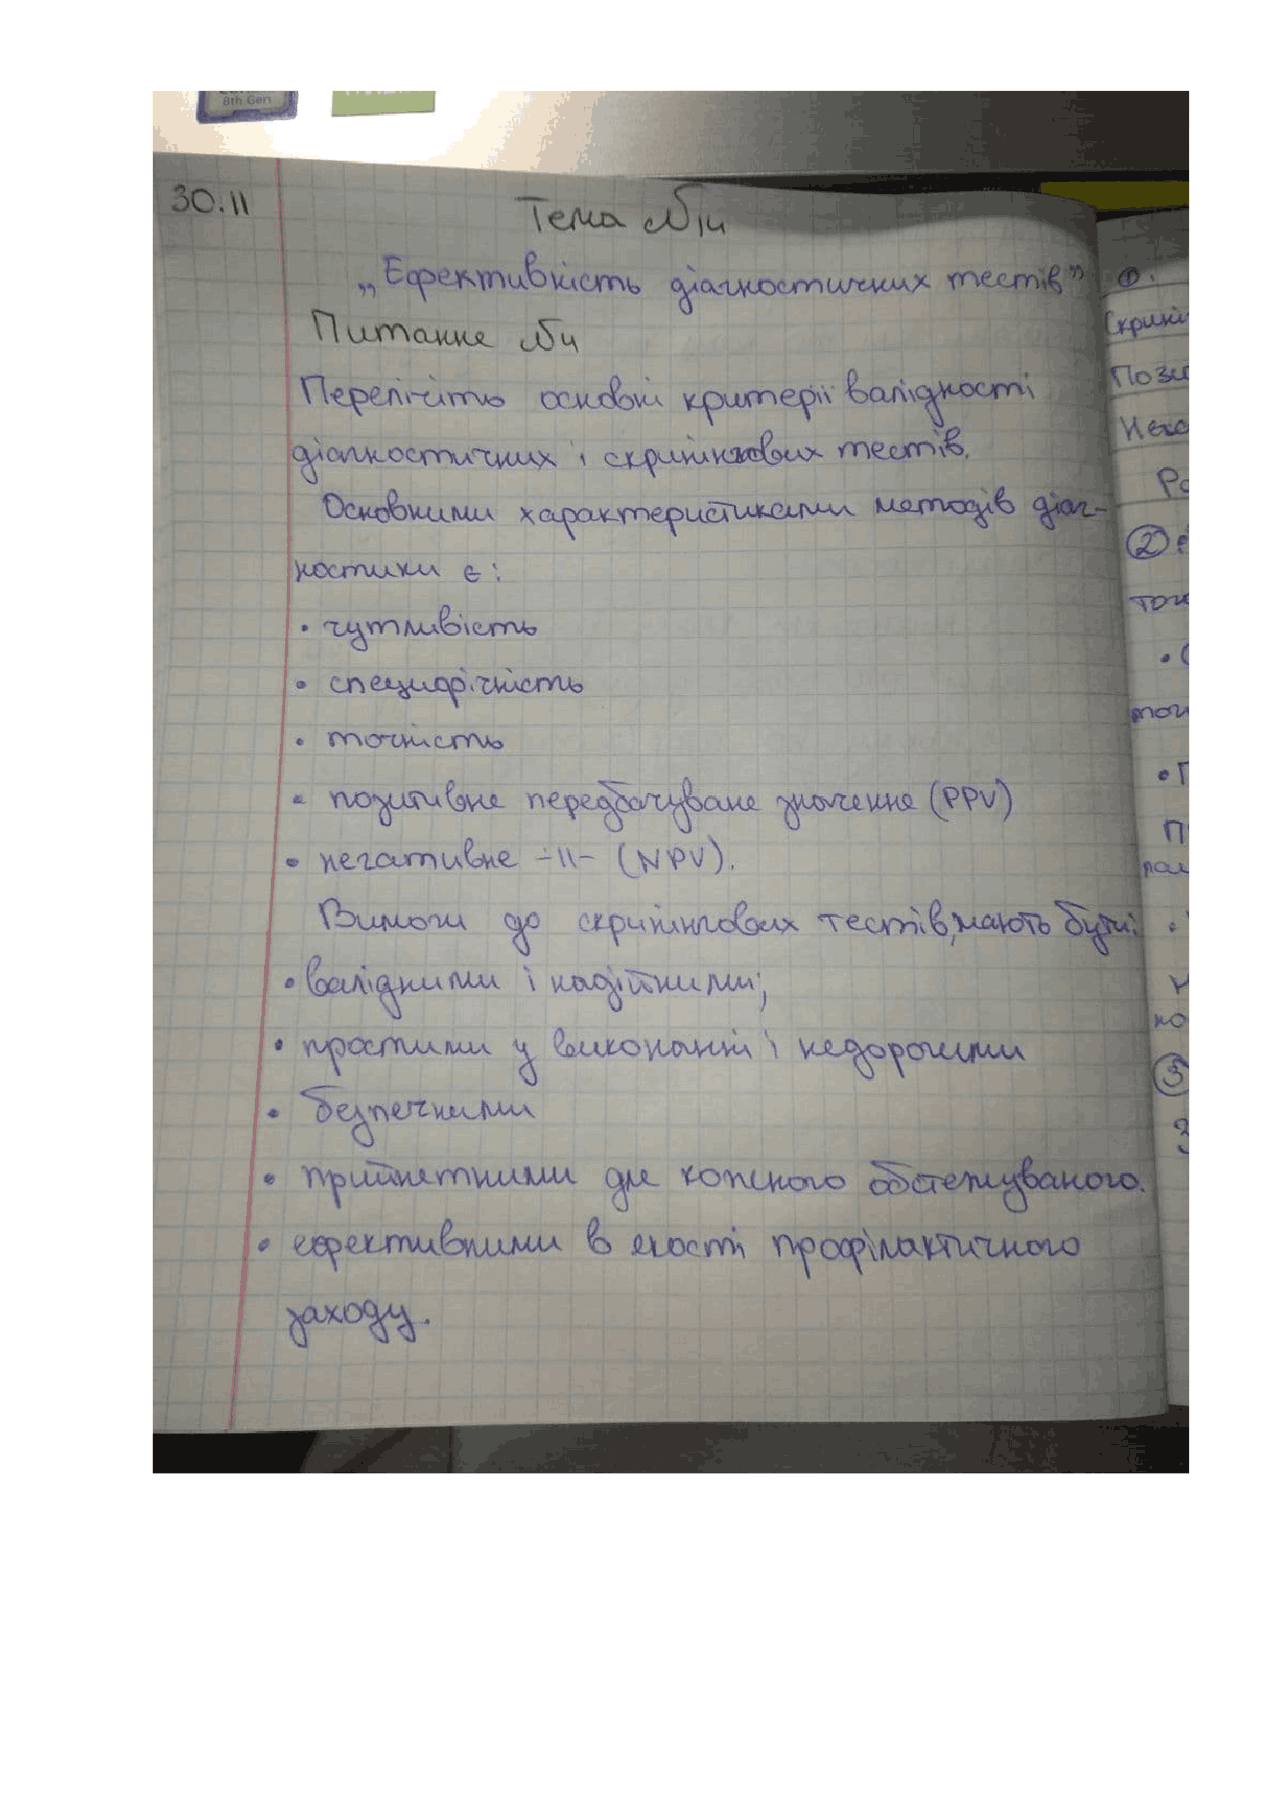 8th Gen
30.11
Тема №14
„Ефективність діагностичних тестів”
Питання №4
Перелічіть основні критерії валідності
діагностичних і скринінгових тестів.
Основними характеристиками методів діаг-
ностики є:
• чутливість
• специфічність
• точність
• позитивне передбачуване значення (PPV)
• негативне -11- (NPV).
Вимоги до скринінгових тестів, мають бути:
• валідними і надійними;
• простими у виконанні і недорогими
• безпечними
• прийнятними для кожного обстежуваного.
• ефективними в якості профілактичного
заходу.
①.
②
③